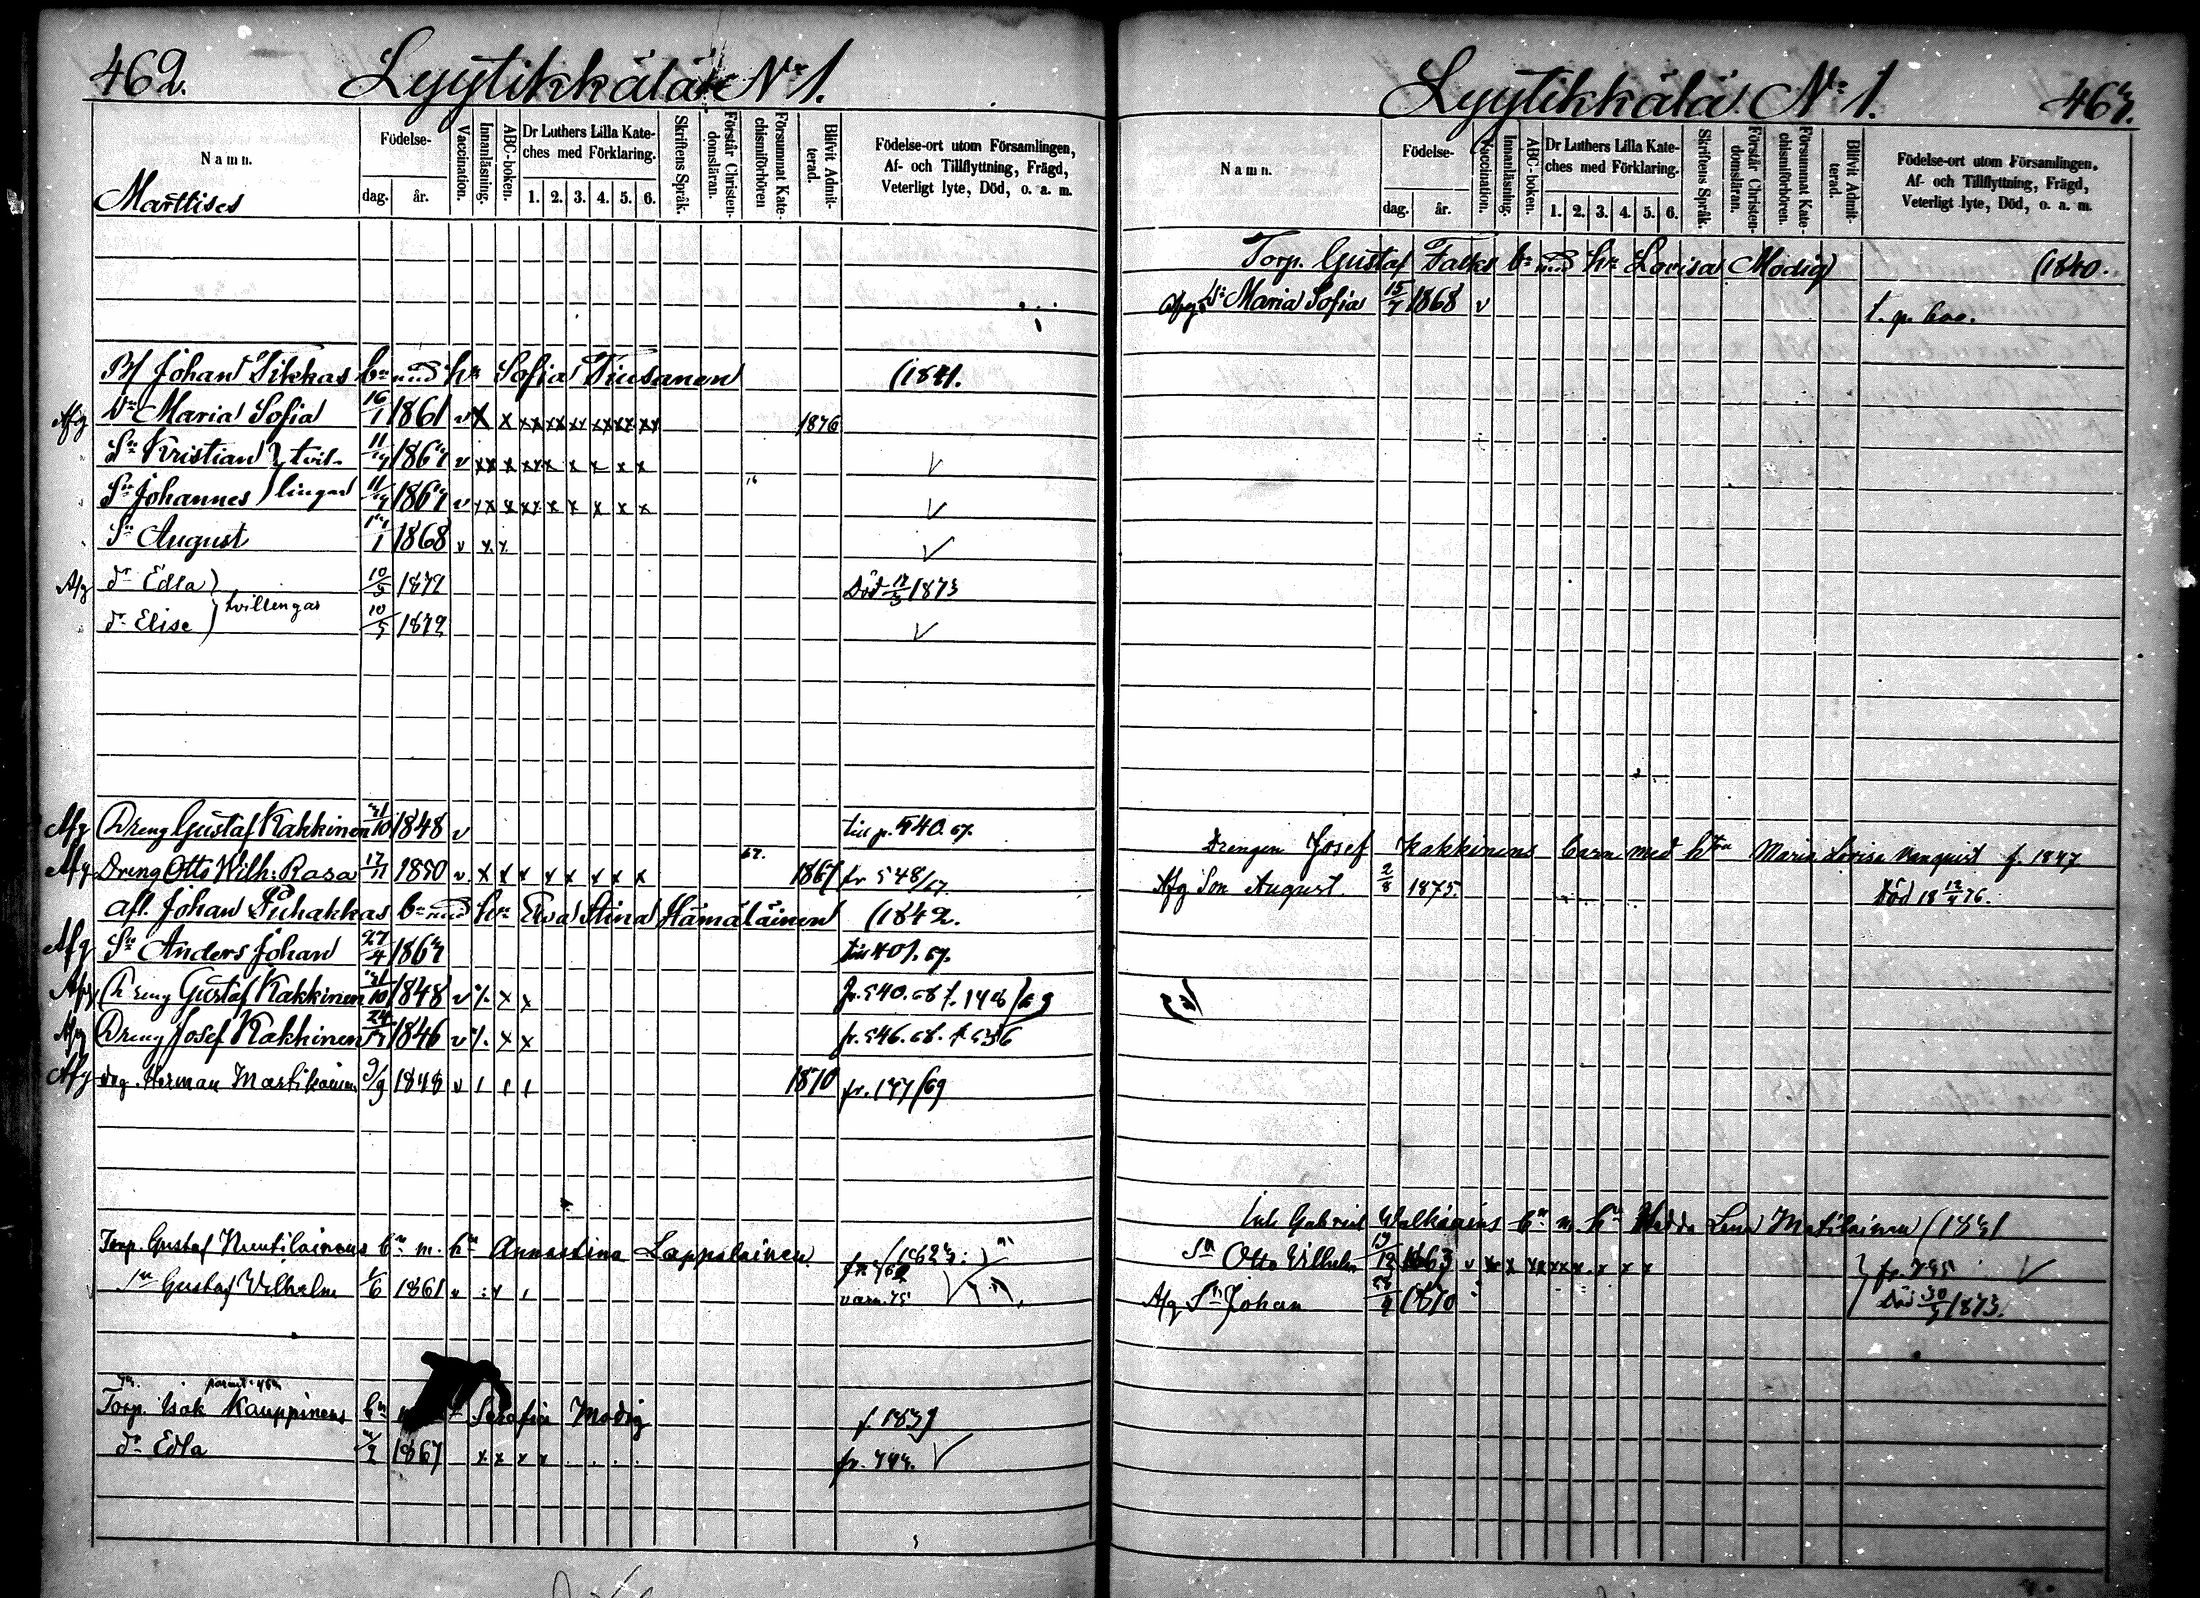 462. Lyytikkälä N:o 1.
Namn.
Födelse-
dag. år.
Vaccination.
Innanläsning.
ABC-boken.
Dr Luthers Lilla Kate-
ches med Förklaring.
1. 2. 3. 4. 5. 6.
Skriftens Språk.
Förstår Christen-
domsläran.
Försummat Kate-
chismiförhören
Blifvit Admit-
terad.
Födelse-ort utom Församlingen,
Af- och Tillflyttning, Frägd,
Veterligt lyte, Död, o. a. m.
Marttises
Bf Johan Tikkas bn med hu Sofia Tiusanen (1841.
Afg Dr Maria Sofia 16/1 1861 v x x xx xx xx xx xx xx 1876
Sn Kristian } tvil- 11/7 1867 v xx x xx x x x x x v
Sn Johannes } lingar 11/7 1867 v xx x xx x x x x x v
Sn August 1 1868 v x x v
Afg dr Edla } 10/5 1872 Död 1873
tvillingar
dr Elise } 10/5 1872 v
Afg Dreng Gustaf Kakkinen 31/10 1848 v till p. 540. 67.
Afg Dreng Otto Wilh. Rasa 17/11 1850 v. x x x x x x x x 67. 1867 fr 548/67.
Afl. Johan Puhakkas bn med hu Eva Stina Hämäläinen (1842.
Afg Sn Anders Johan 27/4 1863 till 401. 67.
Afg Dreng Gustaf Kakkinen 31/10 1848 v %. x x fr. 540. 68 t. 148/69
Afg Dreng Josef Kakkinen 24 1846 v %. x x fr. 546. 68. t 536
Afg drg. Herman Martikainen 9/9 1848 v 1870 fr. 177/69
Torp. Gustaf Nuutilainens bn m. hu Annastina Lappalainen
Sn Gustaf Vilhelm 1/6 1861 v
Torp. Isak Kauppinens bn Serafia Modig f. 1839
dr Edla 1867 x x x x v
Lyytikkälä N:o 1. 463.
Namn.
Födelse-
dag. år.
Vaccination.
Innanläsning.
ABC-boken.
Dr Luthers Lilla Kate-
ches med Förklaring.
1. 2. 3. 4. 5. 6.
Skriftens Språk.
Förstår Christen-
domsläran.
Försummat Kate-
chismiförhören.
Blifvit Admit-
terad.
Födelse-ort utom Församlingen,
Af- och Tillflyttning, Frägd,
Veterligt lyte, Död, o. a. m.
Torp. Gustaf Falks bn med hu Lovisa Modig (1840.
Afg Dr Maria Sofia 15/7 1868 v t. p. 600.
Drengen Josef Kakkinens barn med hun Maria Lovisa f. 1847
Afg Son August 2/8 1875 Död 18 12/4 76.
Inh Gabriel Walkiains bn m. hu Hedda Lena Matilainen (1831
Sn Otto Vilhelm 1863 v fr. 795 v
Afg Sn Johan 1870 Död 1873.